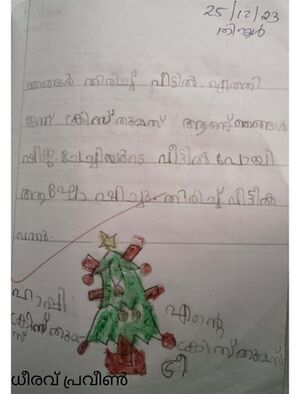 25/12/23
തിങ്കൾ
ഞങ്ങൾ തിരിച്ച് വീട്ടിൽ എത്തി
ഇന്ന് ക്രിസ്തുമസ് ആണ് ഞങ്ങൾ
ഷീജ ചേച്ചിയുടെ വീട്ടിൽ പോയി
ആഘോഷിച്ചു തിരിച്ച് വീട്ടിൽ
വന്നു.
ഹാപ്പി
ക്രിസ്തുമസ്
എന്റെ
ക്രിസ്തുമസ്
ട്രീ
ധീരവ് പ്രവീൺ